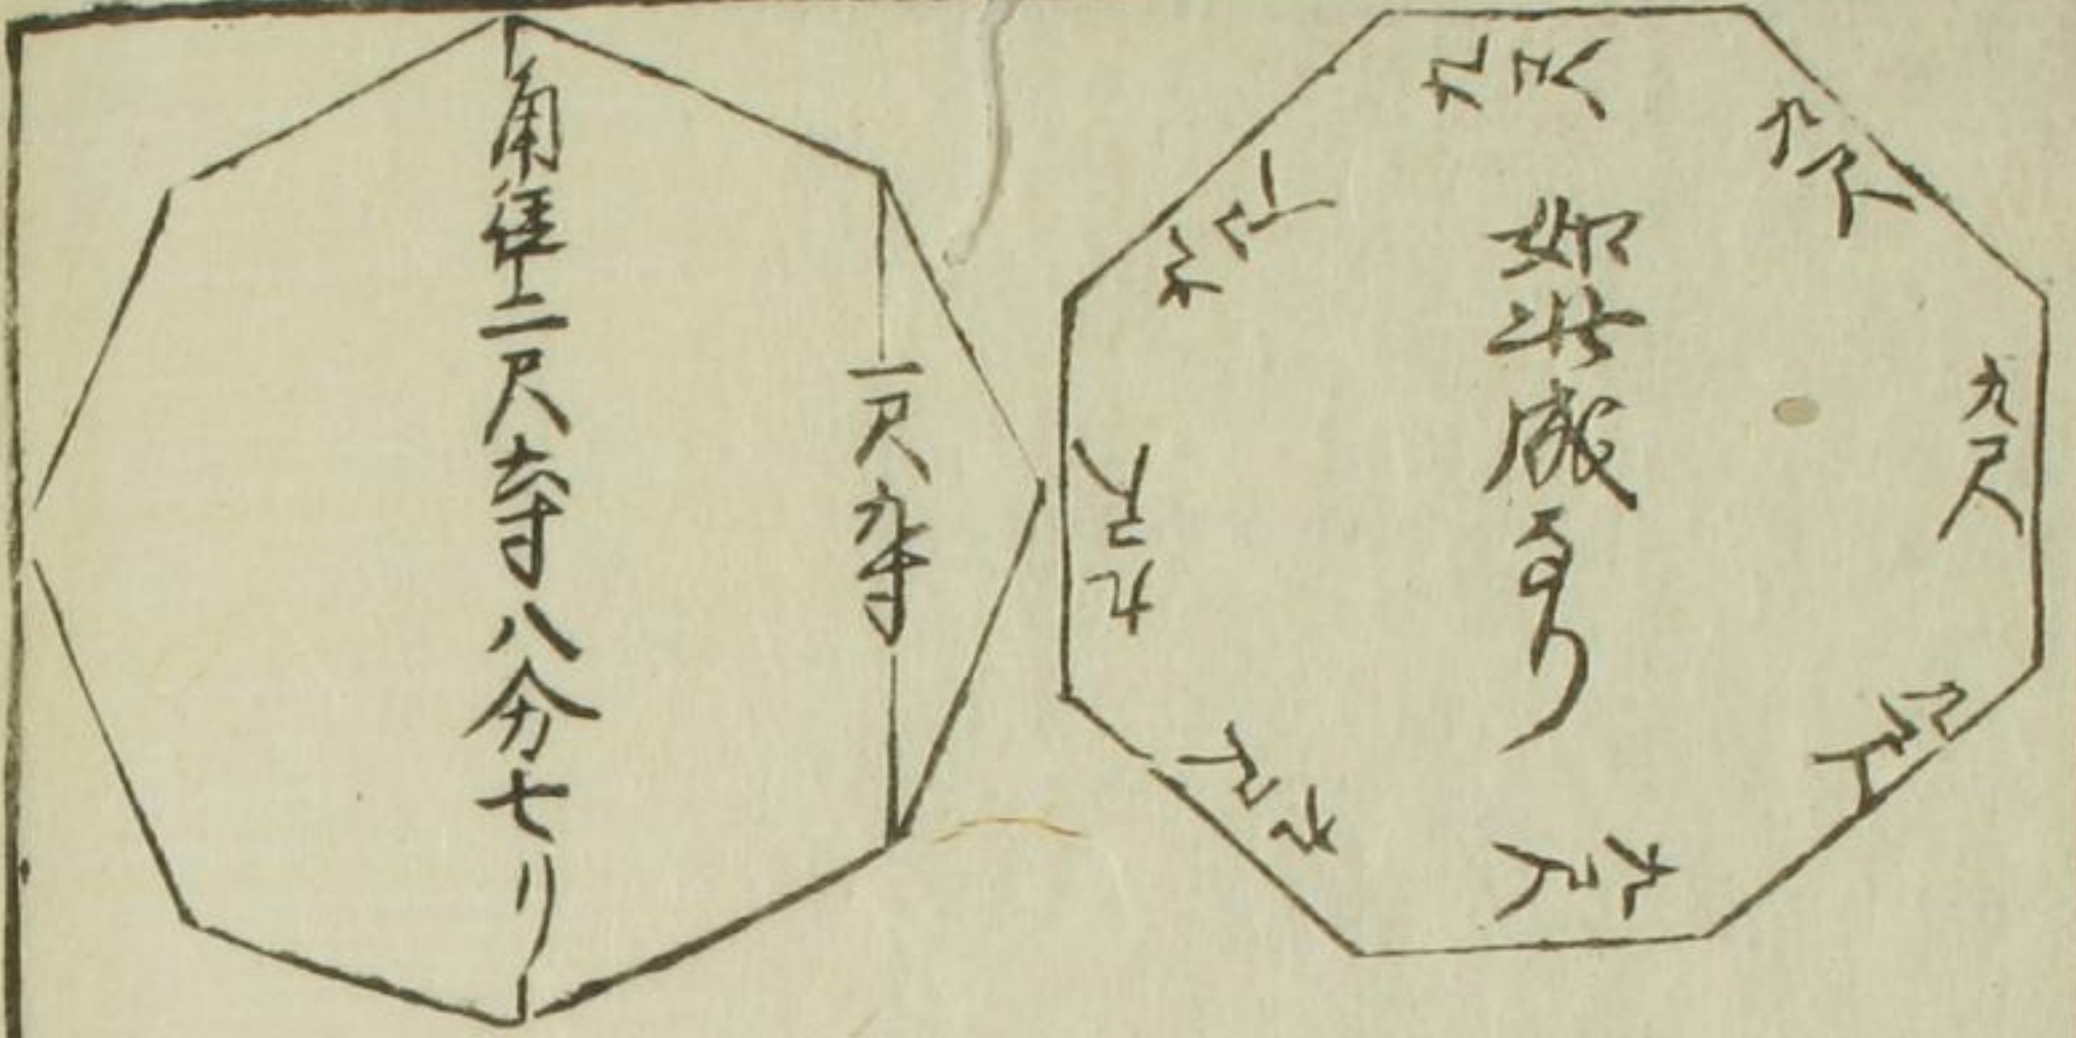 九尺
九尺
九尺
九尺
九尺
九尺
九尺
九尺
如此成なり
一尺九寸
角径二尺六寸八分七リ